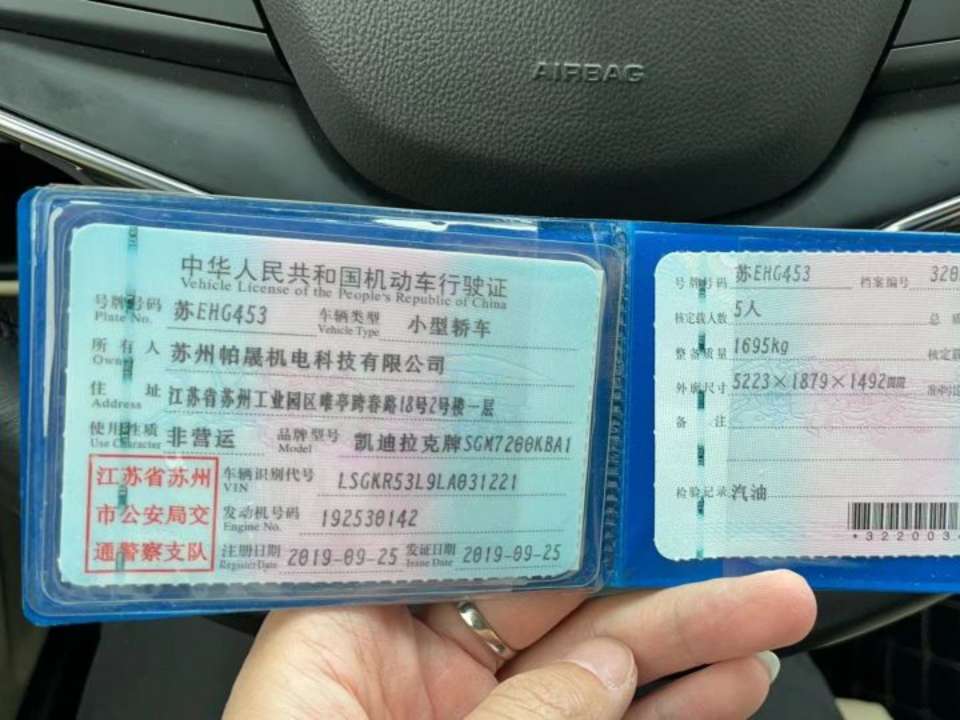 AIRBAG
中华人民共和国机动车行驶证
Vehicle License of the People's Republic of China
号牌号码 苏EHG453 车辆类型 小型轿车
Plate No. Vehicle Type
所有人 苏州帕晟机电科技有限公司
Owner
住址 江苏省苏州工业园区唯亭跨春路18号2号楼一层
Address
使用性质 非营运 品牌型号 凯迪拉克牌SGM7200KBA1
Use Character Model
江苏省苏州
市公安局交
通警察支队
车辆识别代号 LSGKR53L9LA031221
VIN
发动机号码 192530142
Engine No.
注册日期 2019-09-25 发证日期 2019-09-25
Register Date Issue Date
号牌号码 苏EHG453 档案编号 320
核定载人数 5人 总质
整备质量 1695kg 核定载
外廓尺寸 5223×1879×1492mm
备注
检验记录 汽油
*322003